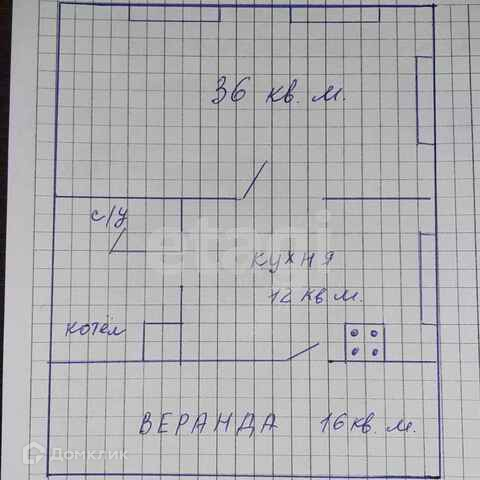 36 кв. м.
с/у
etagi
кухня
12 кв м.
котёл
ВЕРАНДА 16 кв. м.
Домклик